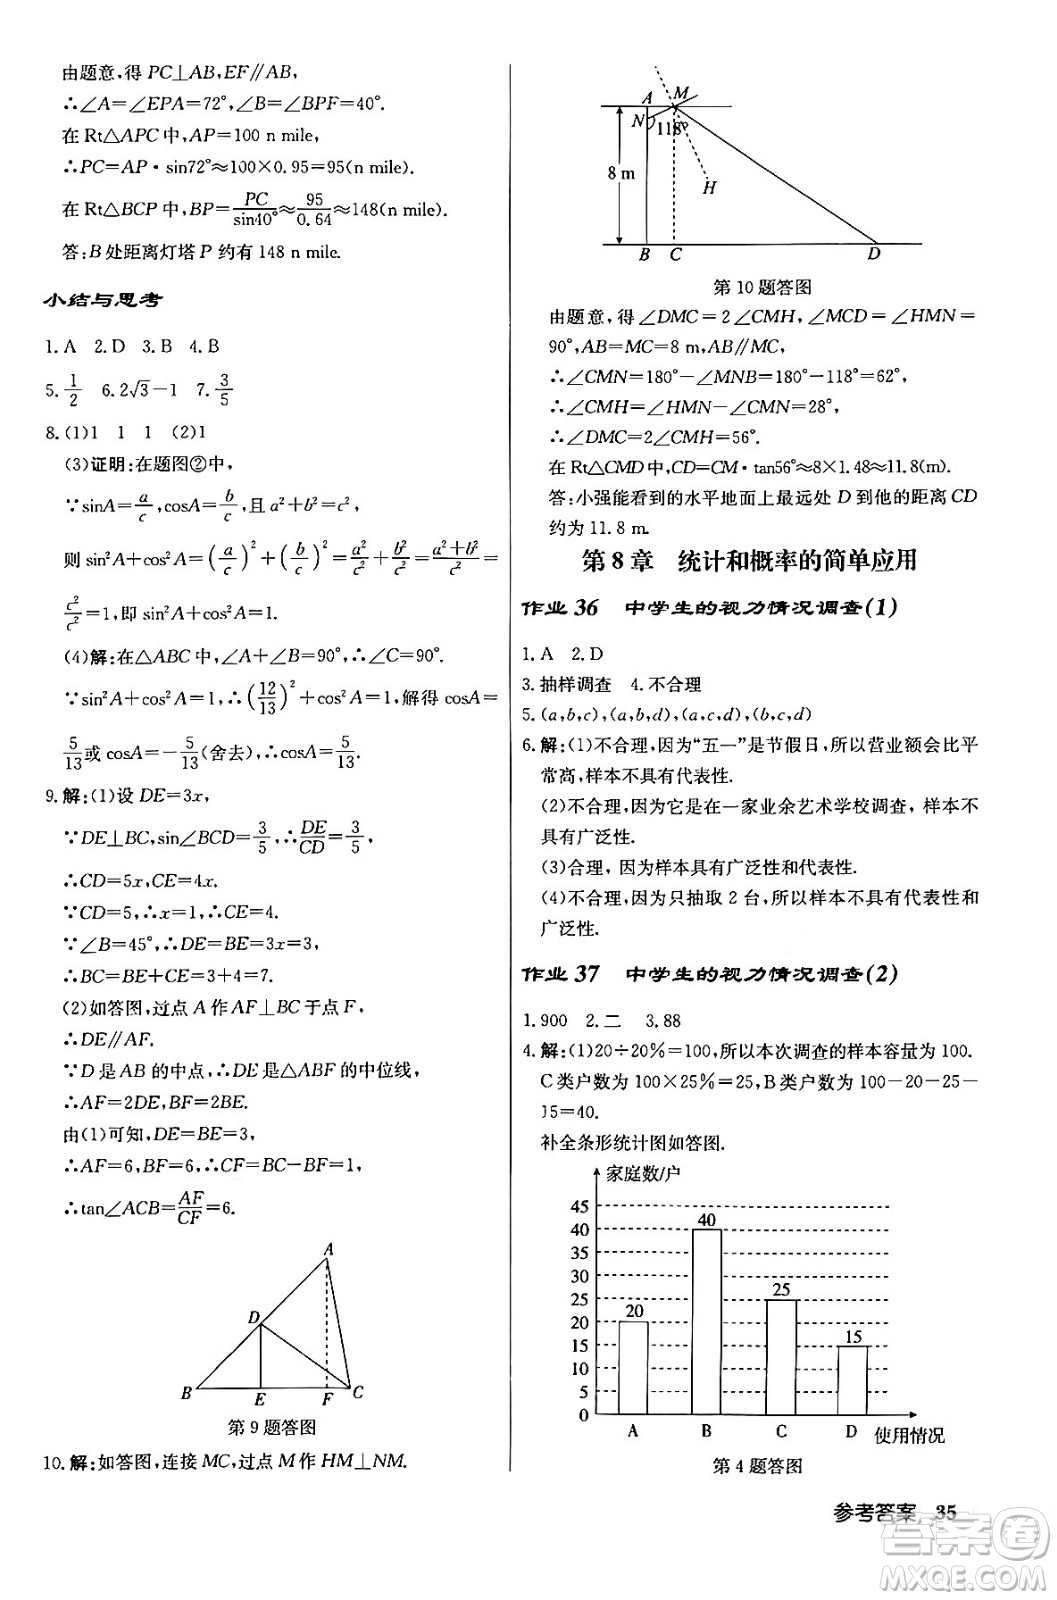 由题意,得 PC⊥AB,EF∥AB,
∴∠A=∠EPA=72°,∠B=∠BPF=40°.
在 Rt△APC 中,AP=100 n mile,
∴PC=AP·sin72°≈100×0.95=95(n mile).
在 Rt△BCP 中,BP=PC/sin40°≈95/0.64≈148(n mile).
答:B 处距离灯塔 P 约有 148 n mile.
小结与思考
1.A 2.D 3.B 4.B
5.1/2 6.2√3-1 7.3/5
8.(1)1 1 1 (2)1
(3)证明:在题图②中,
∵sinA=a/c,cosA=b/c,且 a²+b²=c²,
则 sin²A+cos²A=(a/c)²+(b/c)²=a²/c²+b²/c²=(a²+b²)/c²=
c²/c²=1,即 sin²A+cos²A=1.
(4)解:在△ABC 中,∠A+∠B=90°,∴∠C=90°.
∵sin²A+cos²A=1,∴(12/13)²+cos²A=1,解得 cosA=
5/13或 cosA=-5/13(舍去),∴cosA=5/13.
9.解:(1)设 DE=3x,
∵DE⊥BC,sin∠BCD=3/5,∴DE/CD=3/5,
∴CD=5x,CE=4x.
∵CD=5,∴x=1,∴CE=4.
∵∠B=45°,∴DE=BE=3x=3,
∴BC=BE+CE=3+4=7.
(2)如答图,过点 A 作 AF⊥BC 于点 F,
∴DE∥AF.
∵D 是 AB 的中点,∴DE 是△ABF 的中位线,
∴AF=2DE,BF=2BE.
由(1)可知,DE=BE=3,
∴AF=6,BF=6,∴CF=BC-BF=1,
∴tan∠ACB=AF/CF=6.
A
D
B E F C
第 9 题答图
10.解:如答图,连接 MC,过点 M 作 HM⊥NM.
A M
N 118°
8 m
H
B C D
第 10 题答图
由题意,得∠DMC=2∠CMH,∠MCD=∠HMN=
90°,AB=MC=8 m,AB∥MC,
∴∠CMN=180°-∠MNB=180°-118°=62°,
∴∠CMH=∠HMN-∠CMN=28°,
∴∠DMC=2∠CMH=56°.
在 Rt△CMD 中,CD=CM·tan56°≈8×1.48≈11.8(m).
答:小强能看到的水平地面上最远处 D 到他的距离 CD
约为 11.8 m.
第 8 章 统计和概率的简单应用
作业 36 中学生的视力情况调查(1)
1.A 2.D
3.抽样调查 4.不合理
5.(a,b,c),(a,b,d),(a,c,d),(b,c,d)
6.解:(1)不合理,因为“五一”是节假日,所以营业额会比平
常高,样本不具有代表性.
(2)不合理,因为它是在一家业余艺术学校调查,样本不
具有广泛性.
(3)合理,因为样本具有广泛性和代表性.
(4)不合理,因为只抽取 2 台,所以样本不具有代表性和
广泛性.
作业 37 中学生的视力情况调查(2)
1.900 2.二 3.88
4.解:(1)20÷20%=100,所以本次调查的样本容量为 100.
C 类户数为 100×25%=25,B 类户数为 100-20-25-
15=40.
补全条形统计图如答图.
家庭数/户
45
40 40
35
30
25 25
20 20
15 15
10
5
0
A B C D 使用情况
第 4 题答图
参考答案 35
答案圈
MXQE.COM